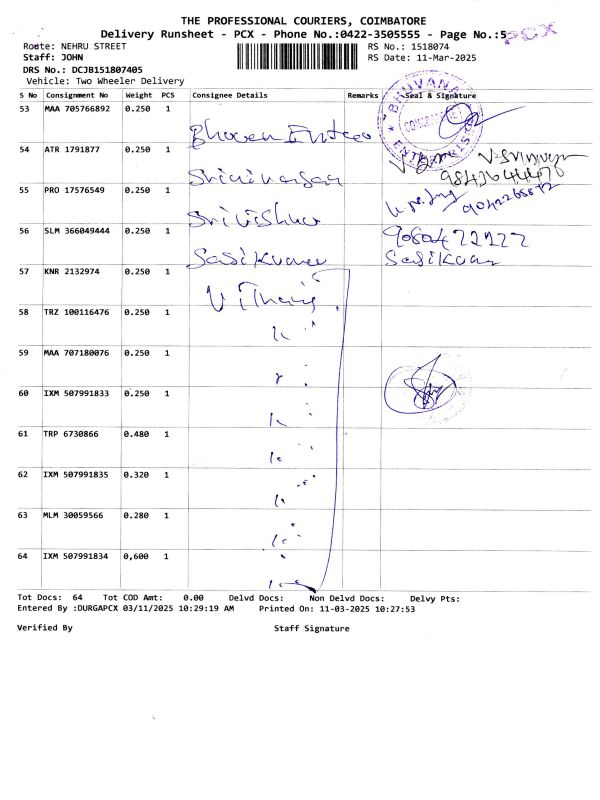 THE PROFESSIONAL COURIERS, COIMBATORE
Delivery Runsheet - PCX - Phone No.:0422-3505555 - Page No.:5
PCX
Route: NEHRU STREET
RS No.: 1518074
Staff: JOHN
RS Date: 11-Mar-2025
DRS No.: DCJB151807405
Vehicle: Two Wheeler Delivery
S No Consignment No Weight PCS Consignee Details Remarks Seal & Signature
53 MAA 705766892 0.250 1
BHUVANA ENTERPRISES
54 ATR 1791877 0.250 1
55 PRO 17576549 0.250 1
56 SLM 366049444 0.250 1
Sasikumar
57 KNR 2132974 0.250 1
58 TRZ 100116476 0.250 1
59 MAA 707180076 0.250 1
60 IXM 507991833 0.250 1
61 TRP 6730866 0.480 1
62 IXM 507991835 0.320 1
63 MLM 30059566 0.280 1
64 IXM 507991834 0,600 1
Tot Docs: 64 Tot COD Amt: 0.00 Delvd Docs: Non Delvd Docs: Delvy Pts:
Entered By :DURGAPCX 03/11/2025 10:29:19 AM Printed On: 11-03-2025 10:27:53
Verified By Staff Signature